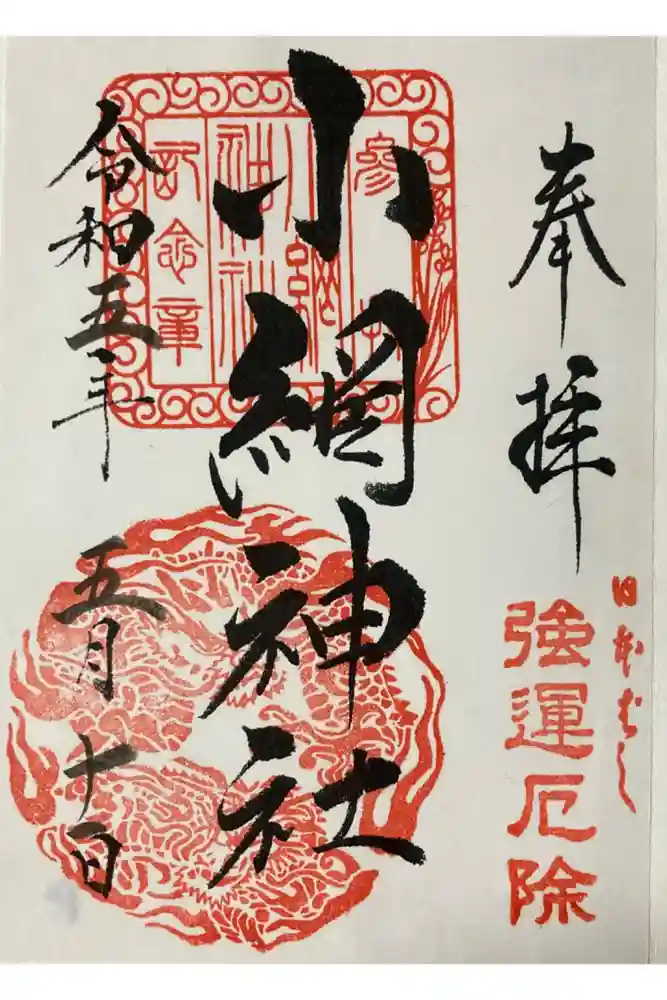 奉拝
日本ばし
強運厄除
小網神社
参拝
小網神社
記念章
令和五年
五月十日